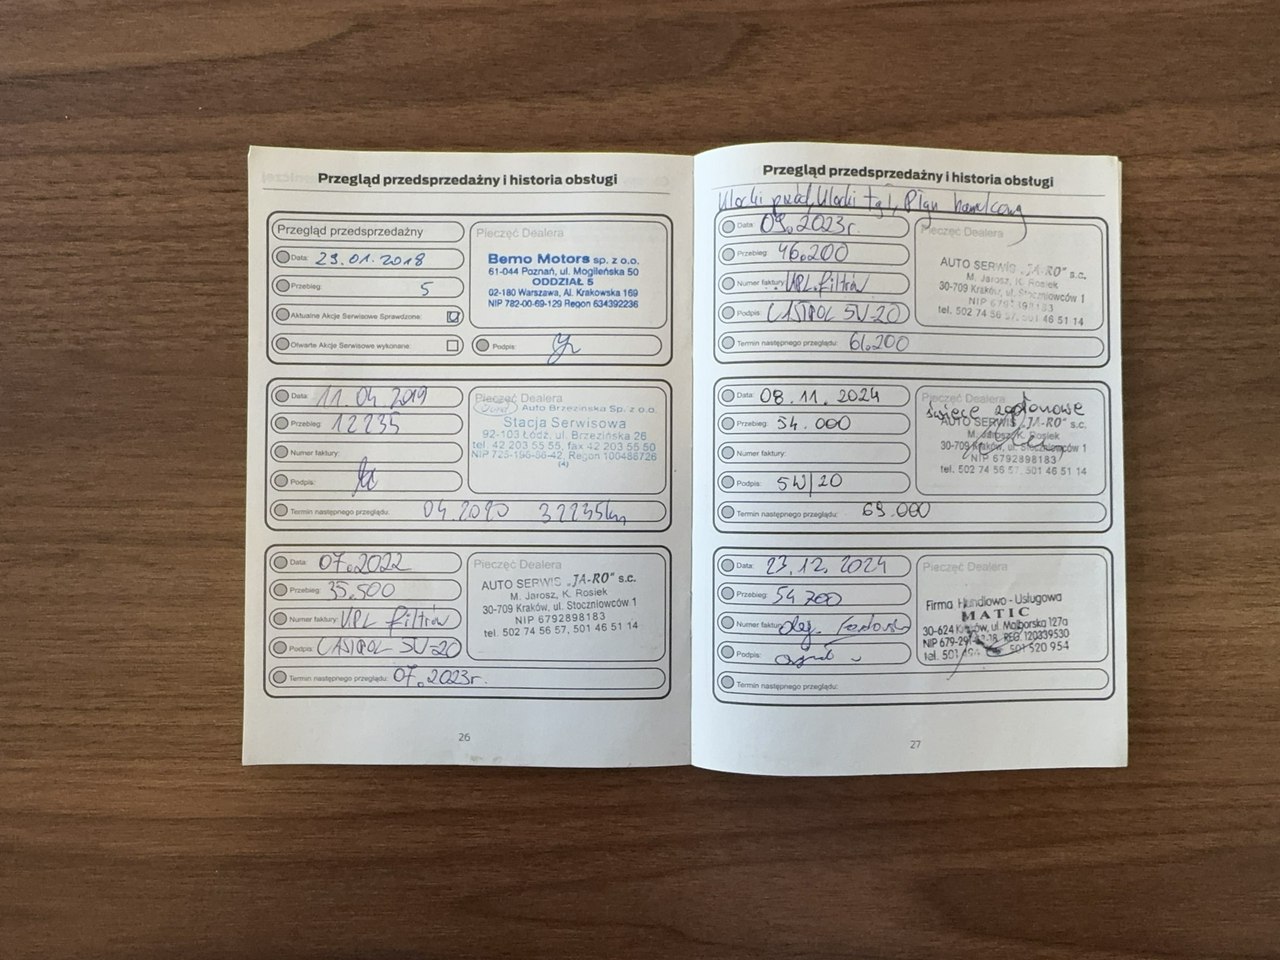 Przegląd przedsprzedażny i historia obsługi
Przegląd przedsprzedażny
Data: 29.01.2018
Przebieg: 5
Aktualne Akcje Serwisowe Sprawdzone:
Otwarte Akcje Serwisowe wykonane:
Pieczęć Dealera
Bemo Motors sp. z o.o.
61-044 Poznań, ul. Mogileńska 50
ODDZIAŁ 5
02-180 Warszawa, Al. Krakowska 169
NIP 782-00-69-129 Regon 634392236
Podpis:
Data: 11 04 2019
Przebieg: 12235
Numer faktury:
Podpis:
Pieczęć Dealera
Ford Auto Brzezińska Sp. z o.o.
Stacja Serwisowa
92-103 Łódź, ul. Brzezińska 26
tel. 42 203 55 55, fax 42 203 55 50
NIP 725-196-56-42, Regon 100486726
(4)
Termin następnego przeglądu: 04.2020 32235km
Data: 07.2022
Przebieg: 35.500
Numer faktury: KPL filtrów
Podpis: CASTROL 5W-20
Pieczęć Dealera
AUTO SERWIS „JA-RO" s.c.
M. Jarosz, K. Rosiek
30-709 Kraków, ul. Stoczniowców 1
NIP 6792898183
tel. 502 74 56 57, 501 46 51 14
Termin następnego przeglądu: 07.2023r.
26
Przegląd przedsprzedażny i historia obsługi
Klocki przód, Klocki tył, Płyn hamulcowy
Data: 09.2023r.
Przebieg: 46.200
Numer faktury: KPL.filtrów
Podpis: CASTROL 5W-20
Pieczęć Dealera
AUTO SERWIS „JA-RO" s.c.
M. Jarosz, K. Rosiek
30-709 Kraków, ul. Stoczniowców 1
NIP 6792898183
tel. 502 74 56 57, 501 46 51 14
Termin następnego przeglądu: 61.200
Data: 08.11.2024
Przebieg: 54.000
Numer faktury:
Podpis: 5W/20
Pieczęć Dealera
świece zapłonowe
AUTO SERWIS „JA-RO" s.c.
M. Jarosz, K. Rosiek
30-709 Kraków, ul. Stoczniowców 1
NIP 6792898183
tel. 502 74 56 57, 501 46 51 14
Termin następnego przeglądu: 69.000
Data: 23.12.2024
Przebieg: 54 700
Numer faktury: olej
Podpis:
Pieczęć Dealera
Firma Handlowo - Usługowa
MATIC
30-624 Kraków, ul. Malborska 127a
REG. 120339530
501 520 954
Termin następnego przeglądu:
27